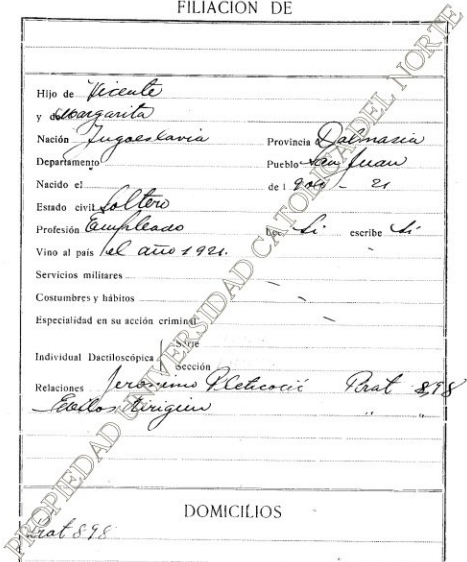 FILIACION DE
Hijo de Vicente
y de Margarita
Nación Jugoeslavia Provincia d Dalmasia
Departamento Pueblo San Juan
Nacido el de 1 900 - 21
Estado civil Soltero
Profesión Empleado Lee Si escribe Si
Vino al país el año 1921.
Servicios militares
Costumbres y hábitos
Especialidad en su acción criminal
Individual Dactiloscópica { Serie
Sección
Relaciones Jeronimo Pleticocic Prat 898
" "
DOMICILIOS
Prat 898
PROPIEDAD UNIVERSIDAD CATOLICA DEL NORTE